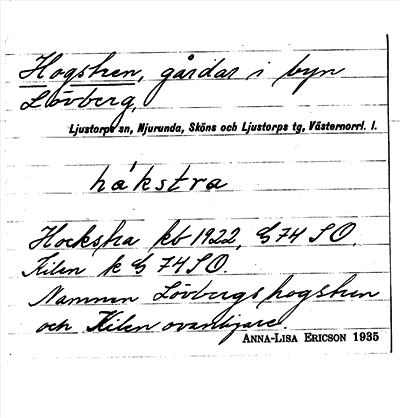 Hogsken, gårdar i byn
Lövberg,
Ljustorps sn, Njurunda, Sköns och Ljustorps tg, Västernorrl. l.
håkstra
Hockska kb 1922, G 74 SO.
Kilen k G 74 SO.
Namnen Lövbergshogsken
och Kilen ovanligare.
ANNA-LISA ERICSON 1935